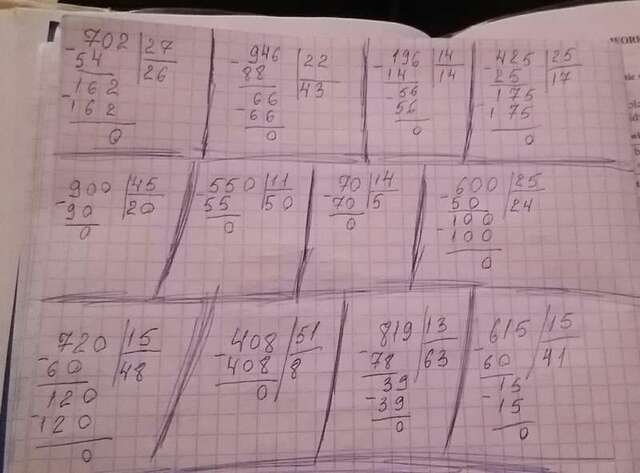 702 27
- 54 26
162
- 162
0
946 22
- 88 43
66
- 66
0
196 14
- 14 14
56
- 56
0
425 25
- 25 17
175
- 175
0
900 45
- 90 20
0
550 11
- 55 50
0
70 14
- 70 5
0
600 25
- 50 24
100
- 100
0
720 15
- 60 48
120
- 120
0
408 51
- 408 8
0
819 13
- 78 63
39
- 39
0
615 15
- 60 41
15
- 15
0
WORK